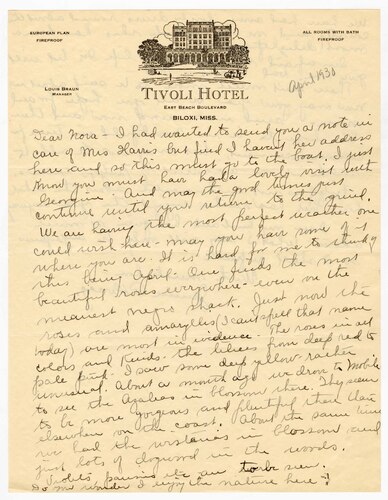 EUROPEAN PLAN
FIREPROOF
ALL ROOMS WITH BATH
FIREPROOF
LOUIS BRAUN
MANAGER
TIVOLI HOTEL
EAST BEACH BOULEVARD
BILOXI, MISS.
April 1930
Dear Nora - I had wanted to send you a note in
care of Mrs Harris but find I havent her address
here and so this must go to the boat. I just
know you must have had a lovely visit with
Georgine. And may the good times just
continue until you return to the grind.
We are having the most perfect weather one
could wish here - may you have some of it
where you are. It is hard for me to think of
this being April. One finds the most
beautiful roses everywhere - even on the
meanest negro shack. Just now the
roses and amaryllis (I cant spell that name
today) are most in evidence. The roses in all
colors and kinds. the lilies from deep red to
pale pink. I saw some deep yellow - rather
unusual. About a month ago we drove to Mobile
to see the Azaleas in blossom there. They seem
to be more gorgeous and plentiful there than
elsewhere on the coast. About the same time
we had the wisterias in blossom and
just lots of dogwood in the woods.
Violets, pansies etc are to be seen.
So no wonder I enjoy the nature here!